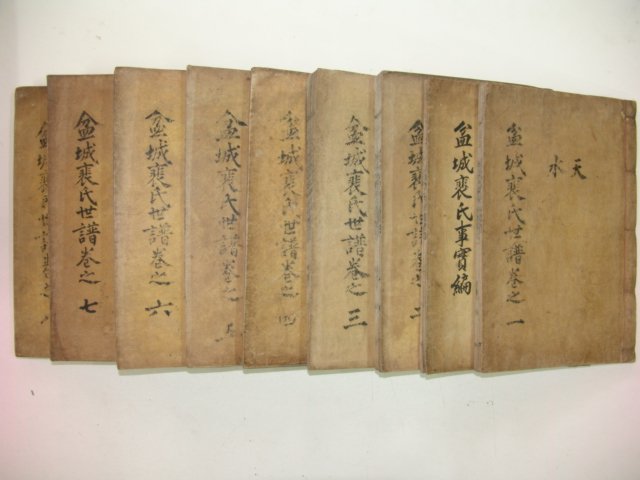 天
水
盆城裵氏世譜卷之一
盆城裵氏事實編
盆城裵氏世譜卷之二
盆城裵氏世譜卷之三
盆城裵氏世譜卷之四
盆城裵氏世譜卷之五
盆城裵氏世譜卷之六
盆城裵氏世譜卷之七
盆城裵氏世譜卷之